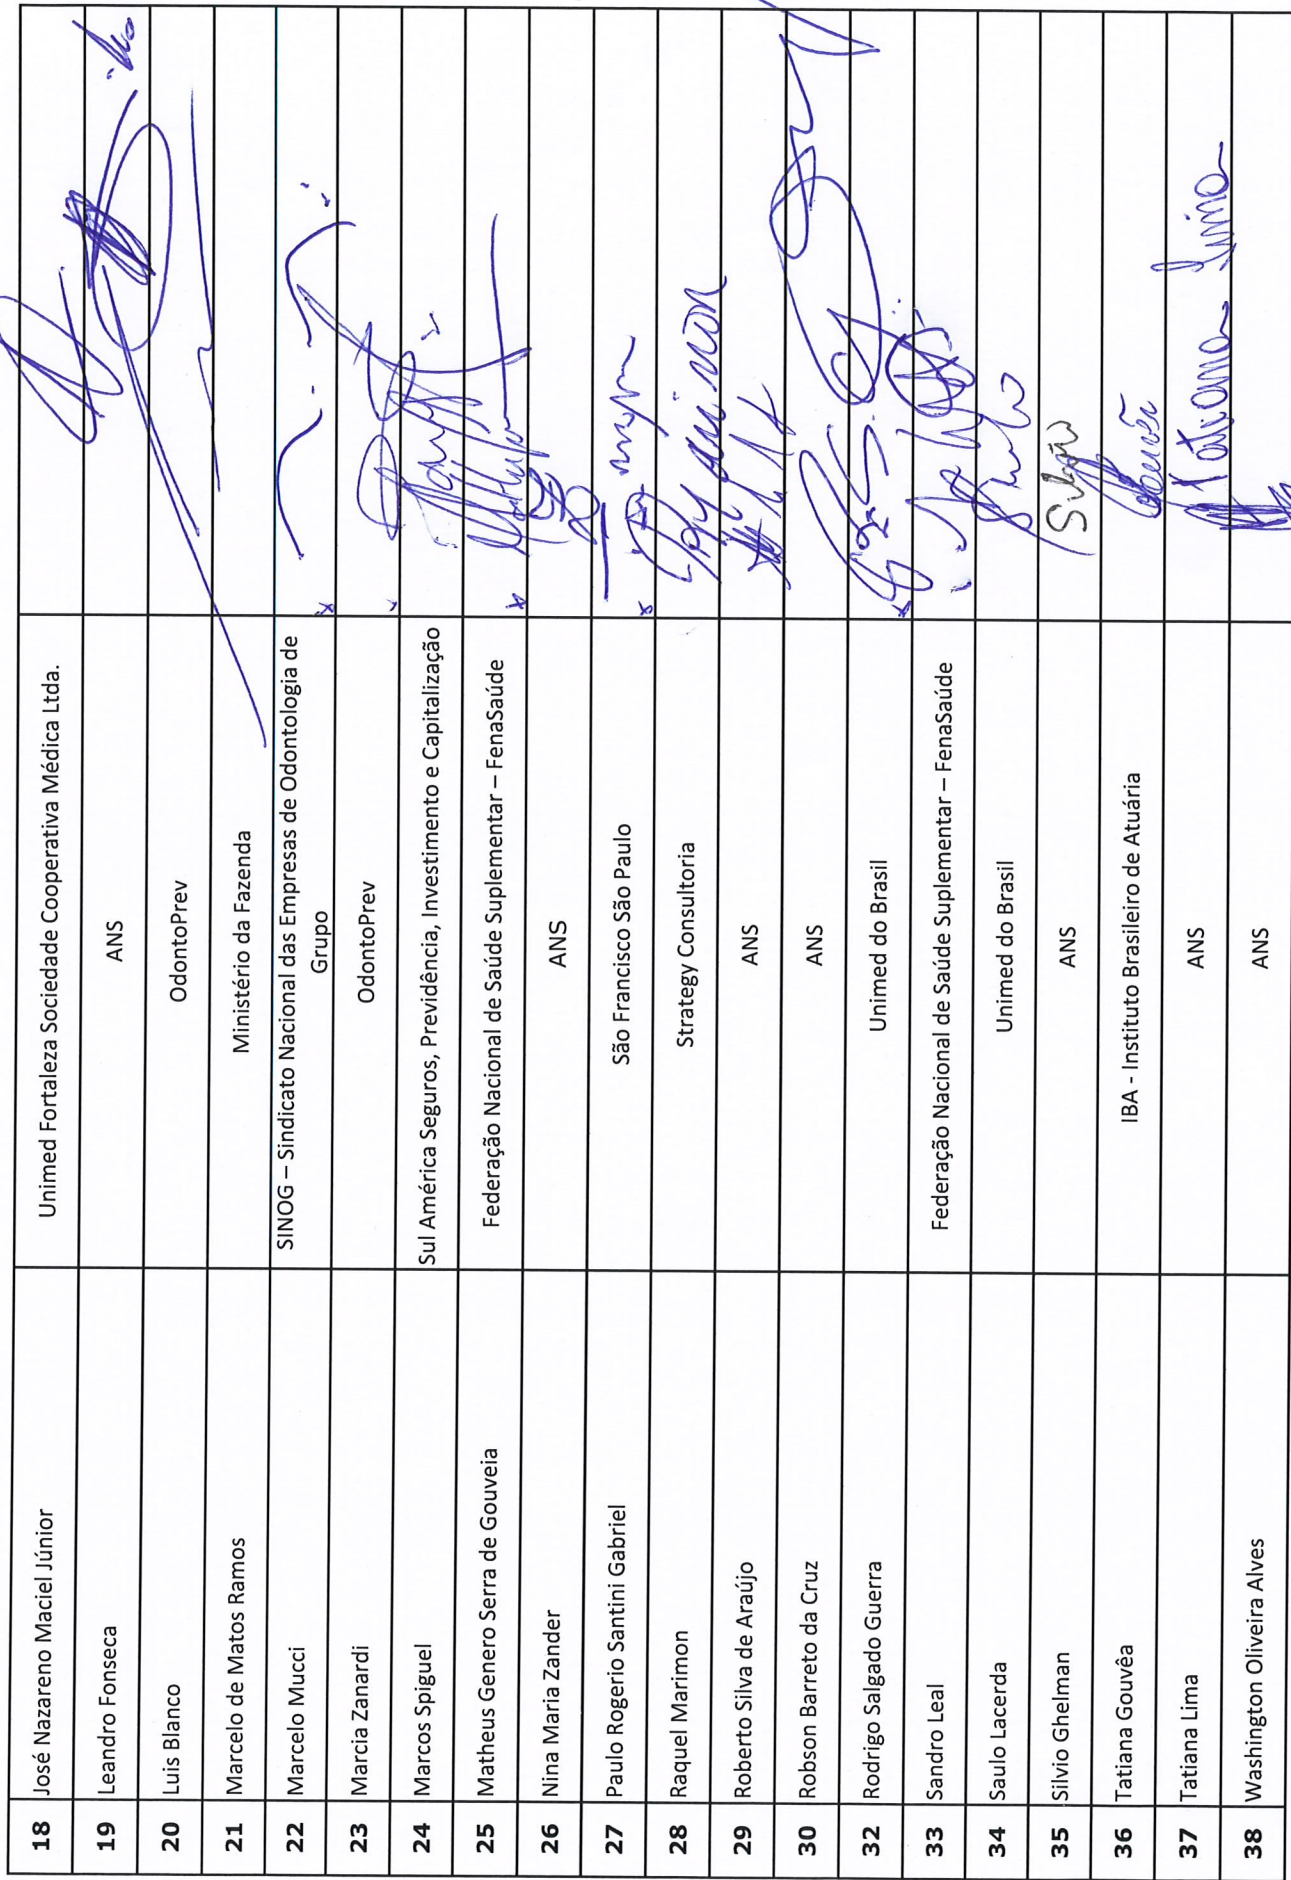 18 José Nazareno Maciel Júnior Unimed Fortaleza Sociedade Cooperativa Médica Ltda.
19 Leandro Fonseca ANS
20 Luis Blanco OdontoPrev
21 Marcelo de Matos Ramos Ministério da Fazenda
22 Marcelo Mucci SINOG – Sindicato Nacional das Empresas de Odontologia de
Grupo
23 Marcia Zanardi OdontoPrev
24 Marcos Spiguel Sul América Seguros, Previdência, Investimento e Capitalização
25 Matheus Genero Serra de Gouveia Federação Nacional de Saúde Suplementar – FenaSaúde
26 Nina Maria Zander ANS
27 Paulo Rogerio Santini Gabriel São Francisco São Paulo
28 Raquel Marimon Strategy Consultoria
29 Roberto Silva de Araújo ANS
30 Robson Barreto da Cruz ANS
32 Rodrigo Salgado Guerra Unimed do Brasil
33 Sandro Leal Federação Nacional de Saúde Suplementar – FenaSaúde
34 Saulo Lacerda Unimed do Brasil
35 Silvio Ghelman ANS
36 Tatiana Gouvêa IBA - Instituto Brasileiro de Atuária
37 Tatiana Lima ANS Tatiana Lima
38 Washington Oliveira Alves ANS